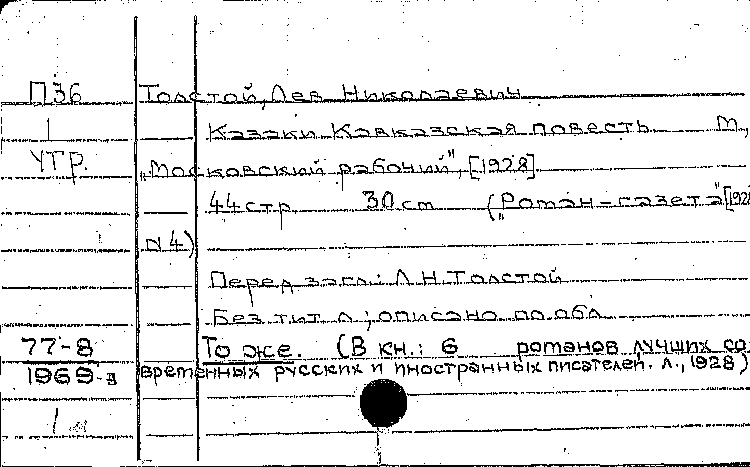 П36 Толстой, Лев Николаевич
1 Казаки Кавказская повесть М.,
УГР. „Московский рабочий", [1928].
44 стр 30 см („Роман-газета" [1928
N 4)
Перед загл.: Л.Н.Толстой
Без тит л; описано по обл.
77-8 То же. (В кн.: 6 романов лучших со
1969-з временных русских и иностранных писателей. Л., 1928)